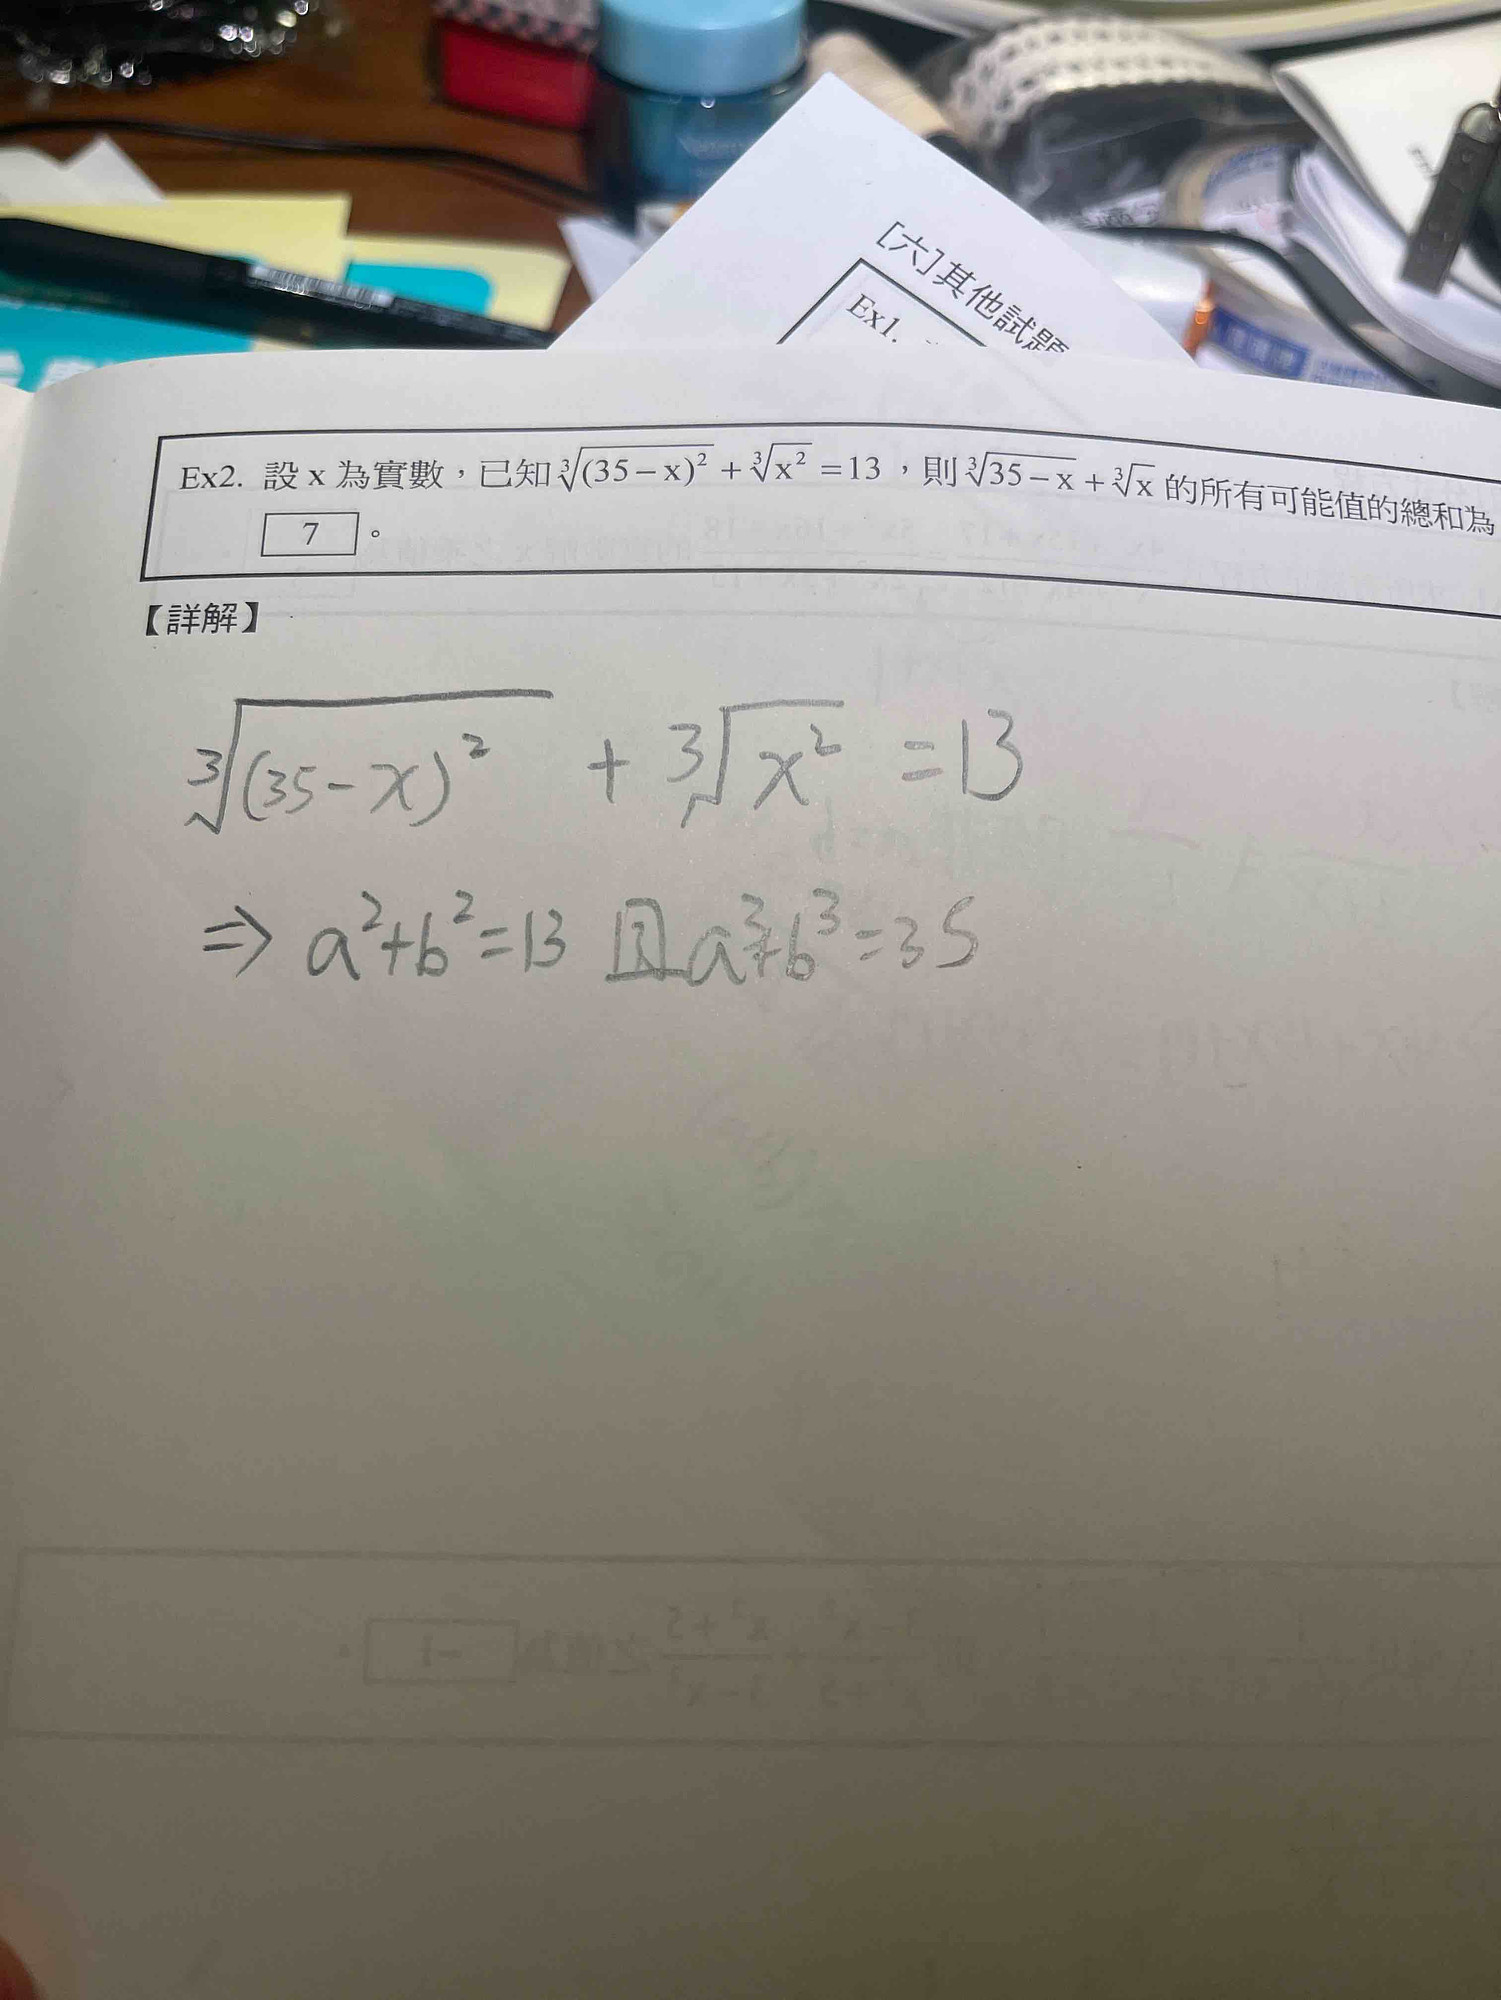 [六]其他試題
Ex1.
Ex2. 設 x 為實數，已知 ∛(35－x)² + ∛x² = 13，則 ∛35－x + ∛x 的所有可能值的總和為
7 。
【詳解】
∛(35-x)² + ∛x² = 13
⇒ a²+b²=13 且 a³+b³=35